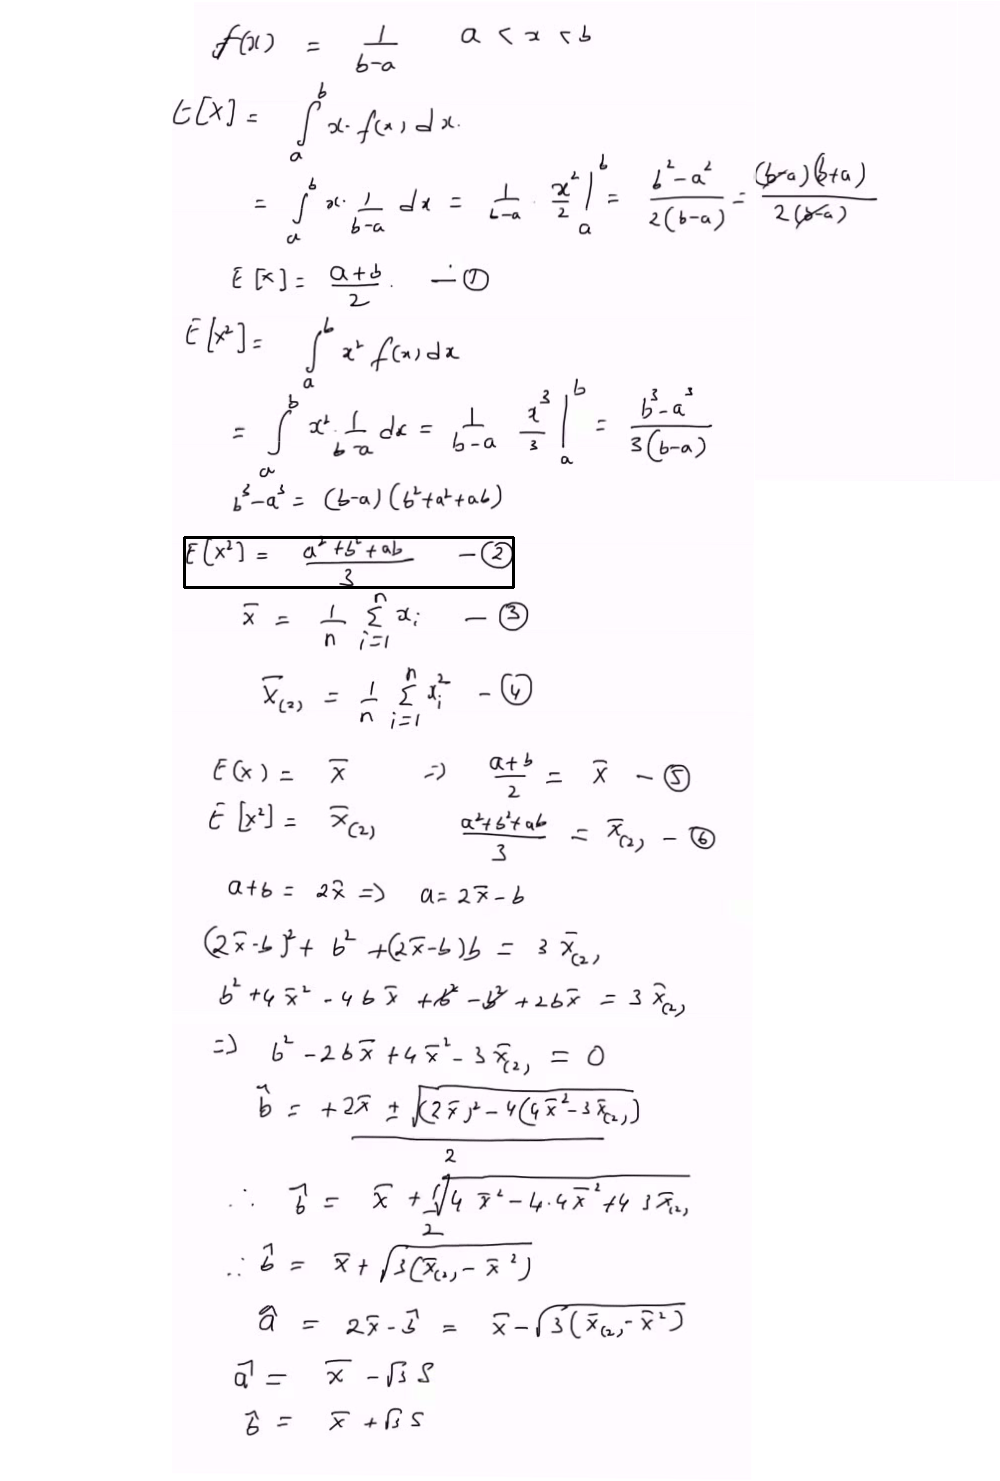 f(x) = 1/(b-a)   a < x < b
E[X] = ∫_a^b x·f(x) dx.
= ∫_a^b x· 1/(b-a) dx = 1/(b-a) · x²/2 |_a^b = (b²-a²)/(2(b-a)) = ((b-a)(b+a))/(2(b-a))
E[X] = (a+b)/2. — ①
E[X²] = ∫_a^b x² f(x) dx
= ∫_a^b x². 1/(b-a) dx = 1/(b-a) x³/3 |_a^b = (b³-a³)/(3(b-a))
b³-a³ = (b-a)(b²+a²+ab)
E[X²] = (a²+b²+ab)/3 — ②
x̄ = 1/n Σ_{i=1}^n x_i — ③
X̄_(2) = 1/n Σ_{i=1}^n x_i² — ④
E(X) = x̄ ⇒ (a+b)/2 = x̄ — ⑤
E[X²] = x̄_(2)   (a²+b²+ab)/3 = x̄_(2) — ⑥
a+b = 2x̄ ⇒ a = 2x̄-b
(2x̄-b)² + b² + (2x̄-b)b = 3 x̄_(2)
b² + 4x̄² - 4bx̄ + b² - b² + 2bx̄ = 3 x̄_(2)
⇒ b² - 2bx̄ + 4x̄² - 3x̄_(2) = 0
b̂ = (+2x̄ ± √((2x̄)² - 4(4x̄² - 3x̄_(2))))/2
∴ b̂ = x̄ + √(4x̄² - 4·4x̄² + 4 3x̄_(2))/2
∴ b̂ = x̄ + √(3(x̄_(2) - x̄²))
â = 2x̄ - b̂ = x̄ - √(3(x̄_(2) - x̄²))
â = x̄ - √3 S
b̂ = x̄ + √3 S